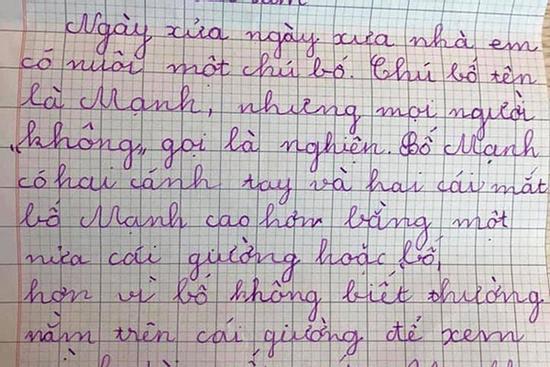 Ngày xửa ngày xưa nhà em
có nuôi một chú bố. Chú bố tên
là Mạnh, nhưng mọi người
"không" gọi là nghiện. Bố Mạnh
có hai cánh tay và hai cái mắt
bố Mạnh cao hơn bằng một
nửa cái giường hoặc bố,
hơn vì bố không biết thường
nằm trên cái giường để xem